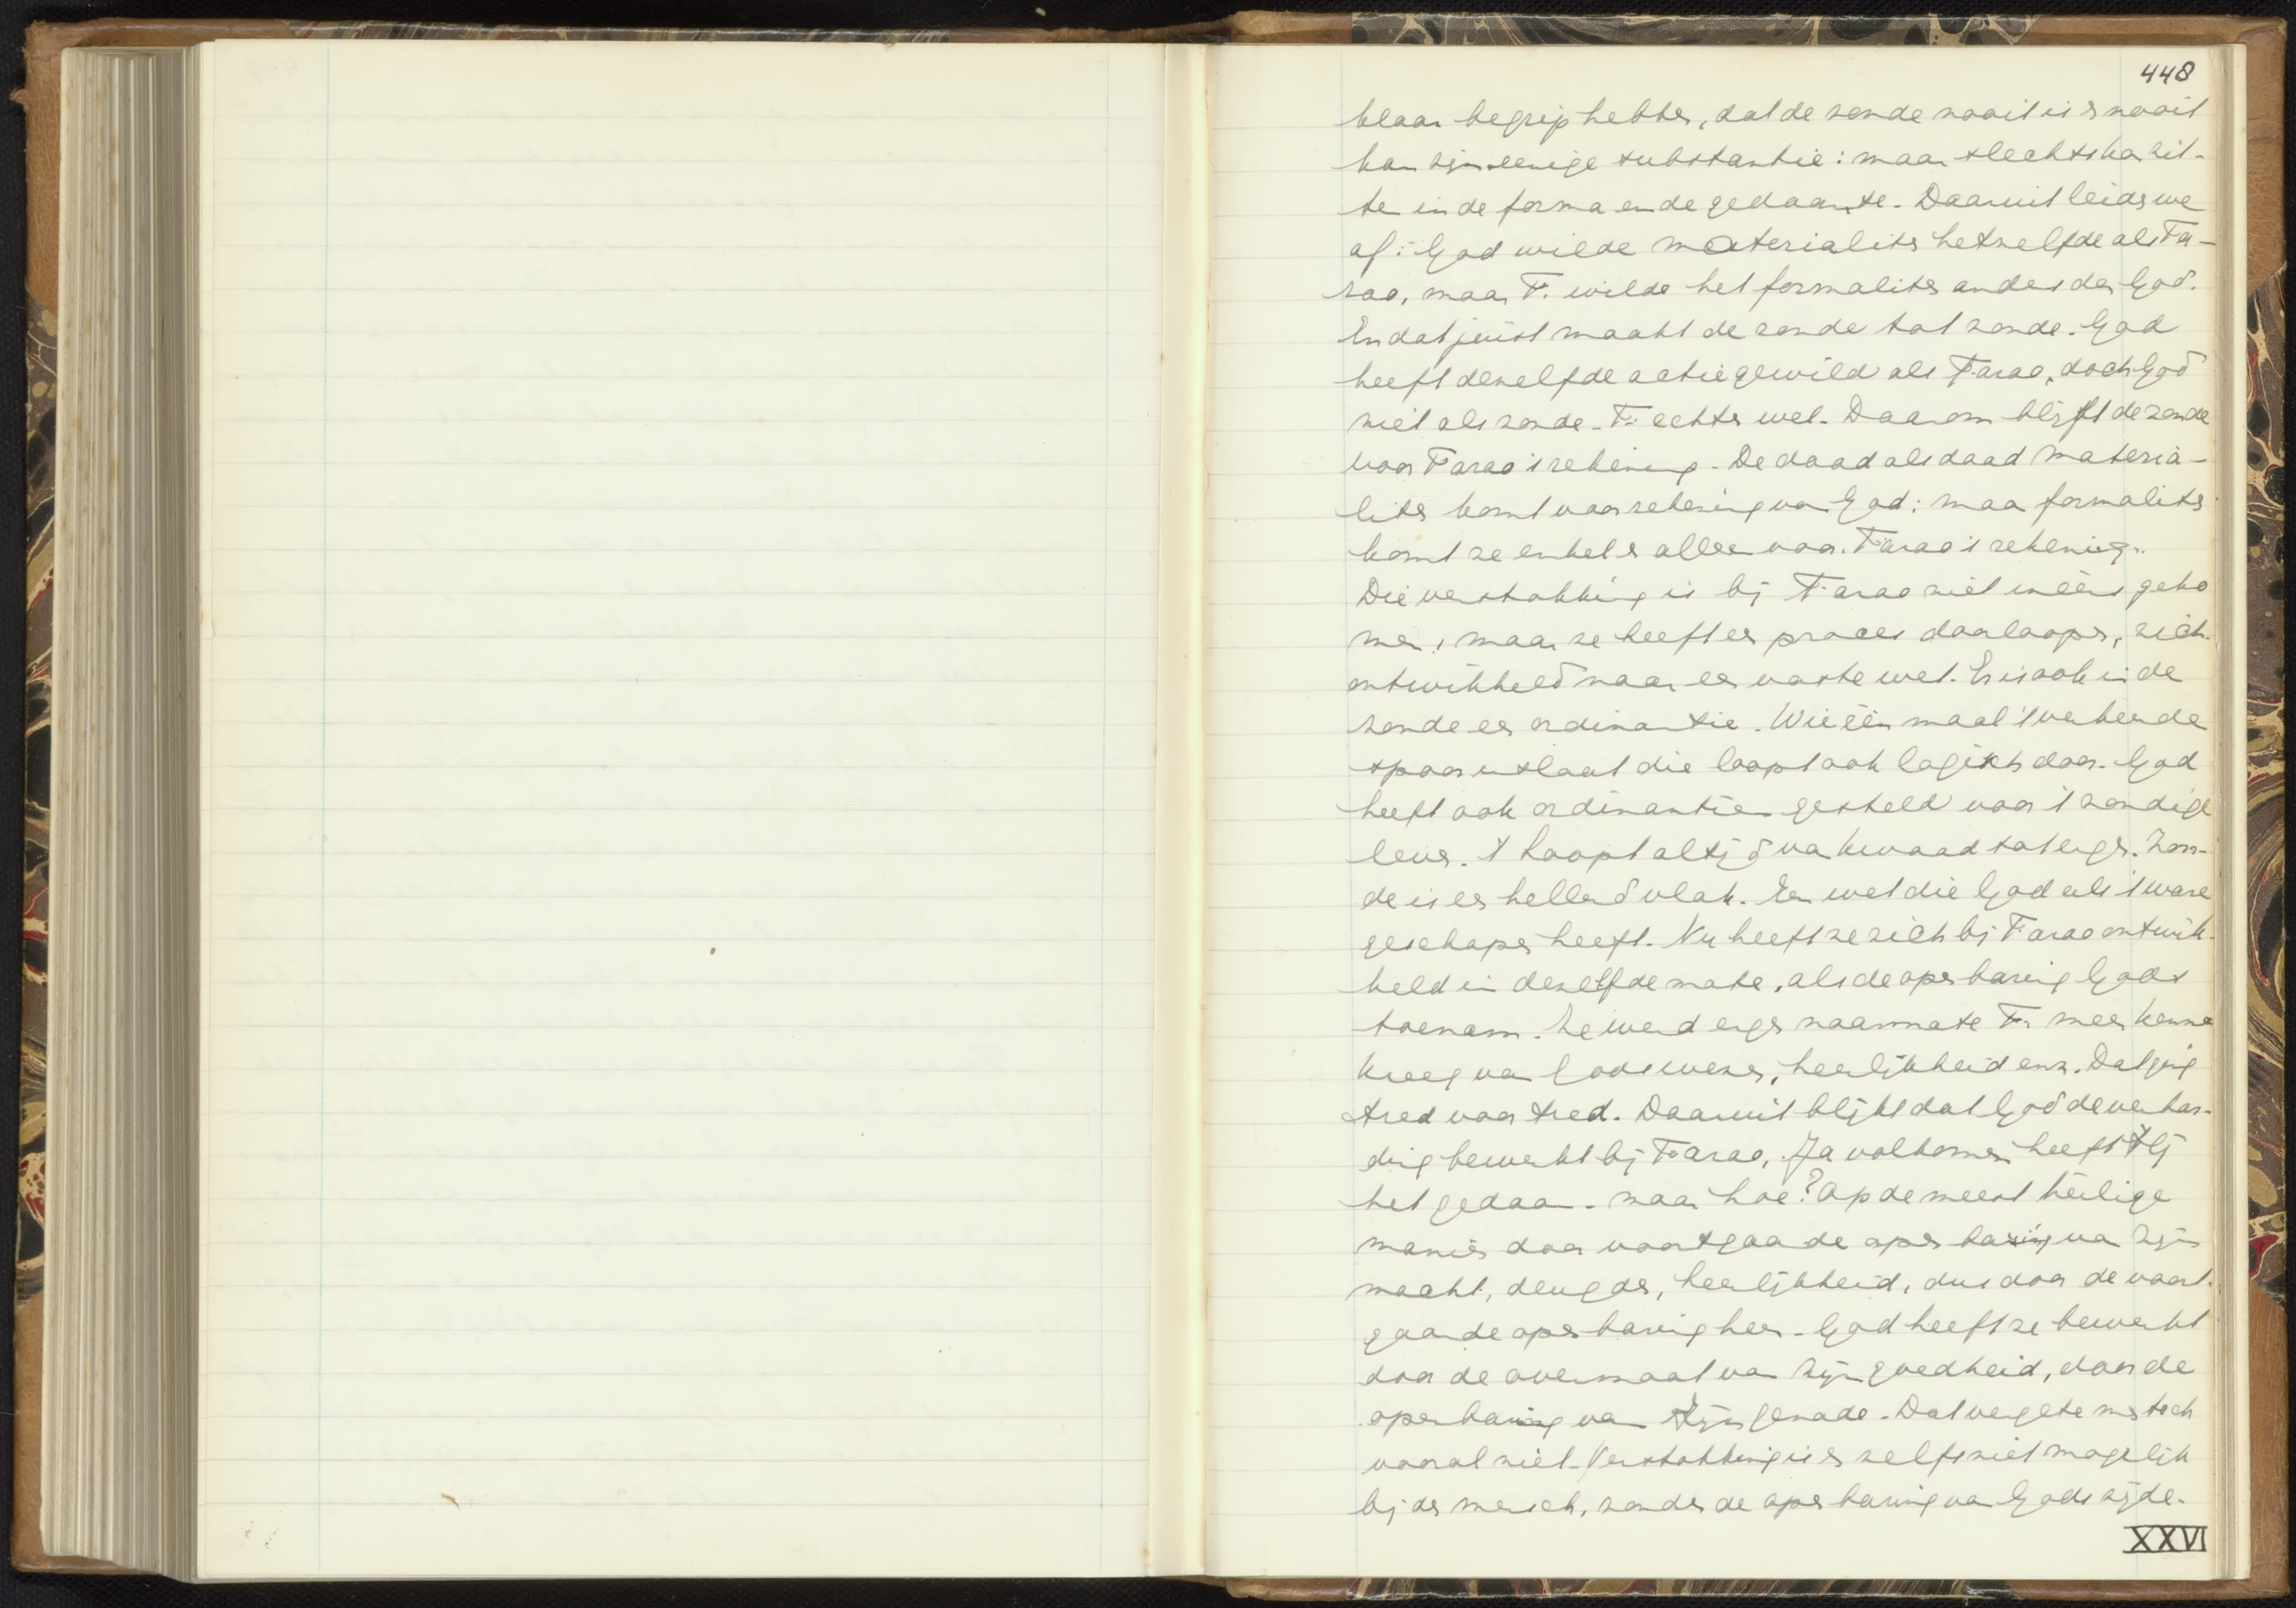 448
klaar begrip hebben, dat de zonde nooit is en nooit
kan zijn eenige substantie: maar slechts kan zit-
ten in de forma en de gedaante. Daaruit leiden we
af: God wilde materialiter hetzelfde als Fa-
rao, maar F. wilde het formaliter anders dan God.
En dat juist maakt de zonde tot zonde. God
heeft dezelfde actie gewild als Farao, doch God
niet als zonde. F. echter wel. Daarom blijft de zonde
voor Farao's rekening. De daad als daad materia-
liter komt voor rekening van God: maar formaliter
komt ze enkel en alleen voor Farao's rekening.
Die verstokking is bij Farao niet ineens geko
men, maar ze heeft een proces doorloopen, zich
ontwikkeld naar een vaste wet. Er is ook in de
zonde een ordinantie. Wie één maal 't verkeerde
spoor inslaat die loopt ook logisch door. God
heeft ook ordinantien gesteld voor 't zondige
leven. 't Loopt altijd van kwaad tot erger. Zon-
de is een hellend vlak. Een wet die God als 't ware
geschapen heeft. Nu heeft ze zich bij Farao ontwik-
keld in dezelfde mate, als de openbaring Gods
toenam. Ze werd erger naarmate F. meer kennis
kreeg van Gods wezen, heerlijkheid enz. Dat ging
tred voor tred. Daaruit blijkt dat God de verhar-
ding bewerkt bij Farao. Ja volkomen heeft Hij
het gedaan. maar hoe? Op de meest heilige
manier door voortgaande openbaring van Zijn
macht, deugden, heerlijkheid, dus door de voort-
gaande openbaring heen. God heeft ze bewerkt
door de overmaat van Zijn goedheid, door de
openbaring van Zijn genade. Dat vergete men toch
vooral niet. Verstokking is er zelfs niet mogelijk
bij den mensch, zonder de openbaring van Gods zijde.
XXVI